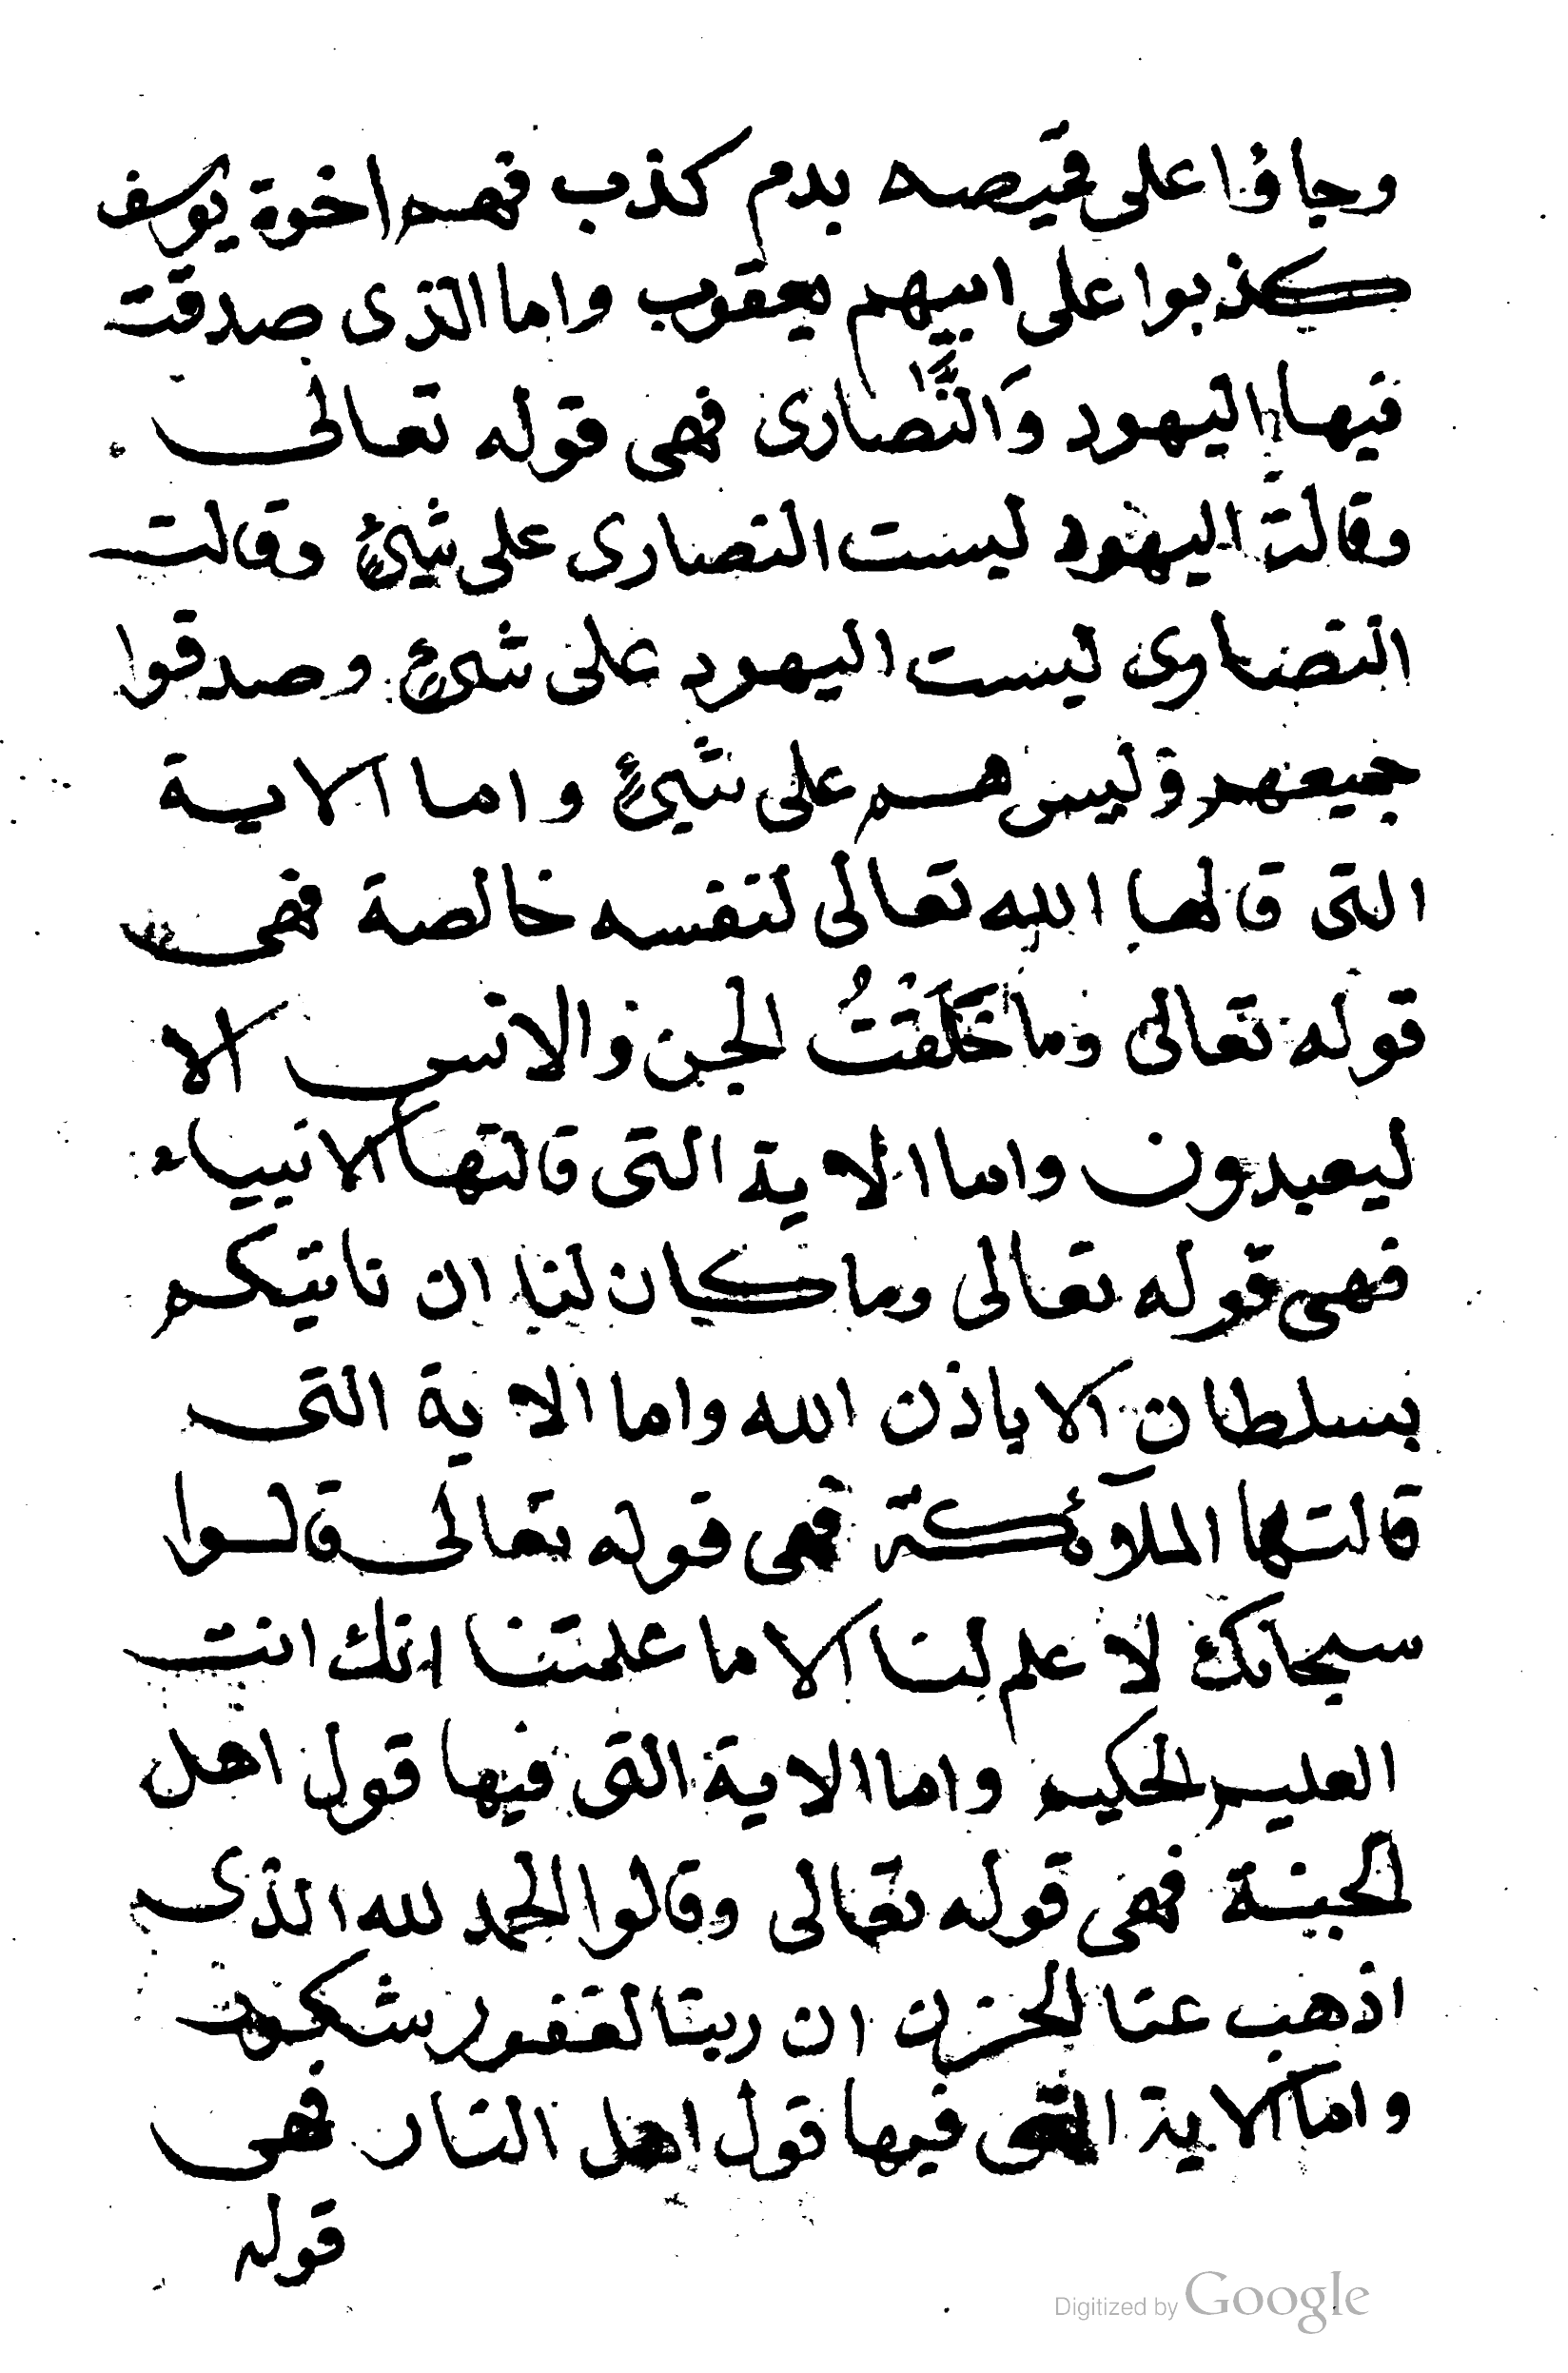 وجاؤا على قميصه بدم كذب فهم اخوة يوسف
كذبوا على ابيهم يعقوب واما الذى صدقت
فيها اليهود وَالنَّصارى فهى قوله تعالى
وقالت اليهود ليست النصارى على شيئ وقالت
النصارى ليست اليهود على شيئ وصدقوا
جميعهم وليس هم على شيئ واما الاية
التى قالها الله تعالى لنفسه خالصة فهى
قوله تعالى وما خَلَقْتُ الجن والانس الا
ليعبدون واما الاية التى قالتها الانبياء
فهى قوله تعالى وما كان لنا ان ناتيكم
بسلطان الا باذن الله واما الاية التى
قالتها الملآئكة فهى قوله تعالى قالوا
سبحانك لا علم لنا الا ما علمتنا انك انت
العليم الحكيم واما الاية التى فيها قول اهل
الجنة فهى قوله تعالى وقالوا الحمد لله الذى
اذهب عنا الحزن ان ربنا لغفور شكور
واما الاية التى فيها قول اهل النار فهى
قوله
Digitized by Google